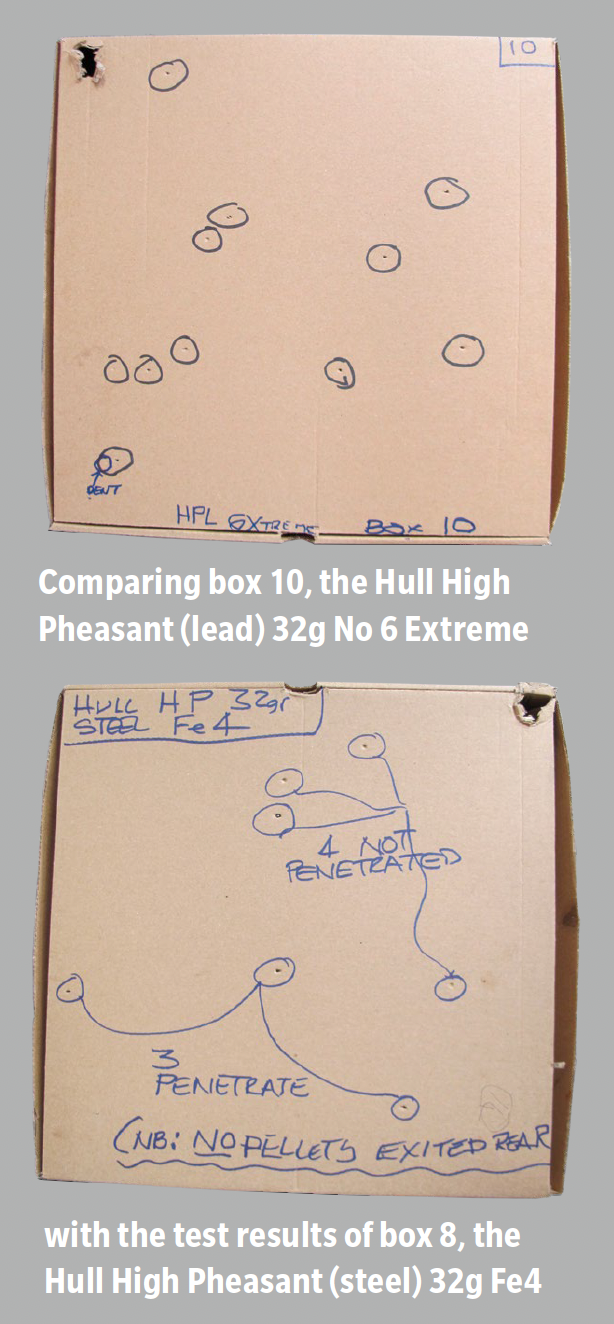 10
DENT
HPL EXTREME BOX 10
Comparing box 10, the Hull High
Pheasant (lead) 32g No 6 Extreme
HULL HP 32gr
STEEL Fe4
4 NOT
PENETRATED
3
PENETRATE
(NB: NO PELLETS EXITED REAR
with the test results of box 8, the
Hull High Pheasant (steel) 32g Fe4